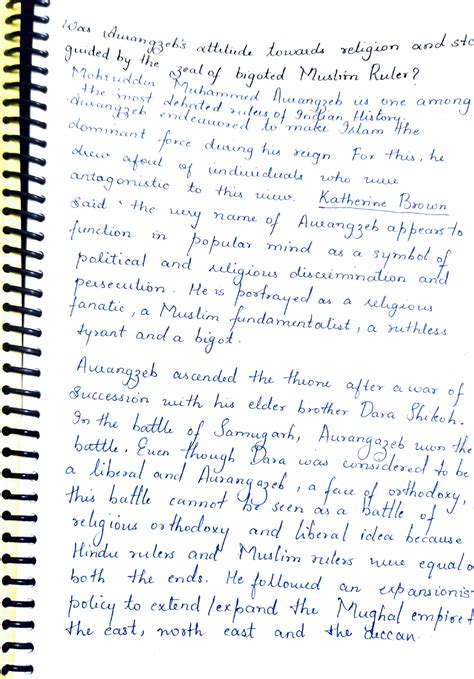 Was Aurangzeb's attitude towards religion and
guided by the zeal of bigoted Muslim Ruler?
Mohiuddin Muhammed Aurangzeb is one among
the most debated rulers of Indian History.
Aurangzeb endeavored to make Islam the
dominant force during his reign. For this, he
drew afoul of individuals who were
antagonistic to this view. Katherine Brown
said 'the very name of Aurangzeb appears to
function in popular mind as a symbol of
political and religious discrimination and
persecution. He is portrayed as a religious
fanatic, a Muslim fundamentalist, a ruthless
tyrant and a bigot.
Aurangzeb ascended the throne after a war of
succession with his elder brother Dara Shikoh.
In the battle of Samugarh, Aurangazeb won the
battle. Even though Dara was considered to be
a liberal and Aurangazeb, a face of orthodoxy,
this battle cannot be seen as a battle of
religious orthodoxy and liberal idea because
Hindu rulers and Muslim rulers were equal o
both the ends. He followed an expansionis
policy to extend/expand the Mughal empire t
the east, north east and the deccan.